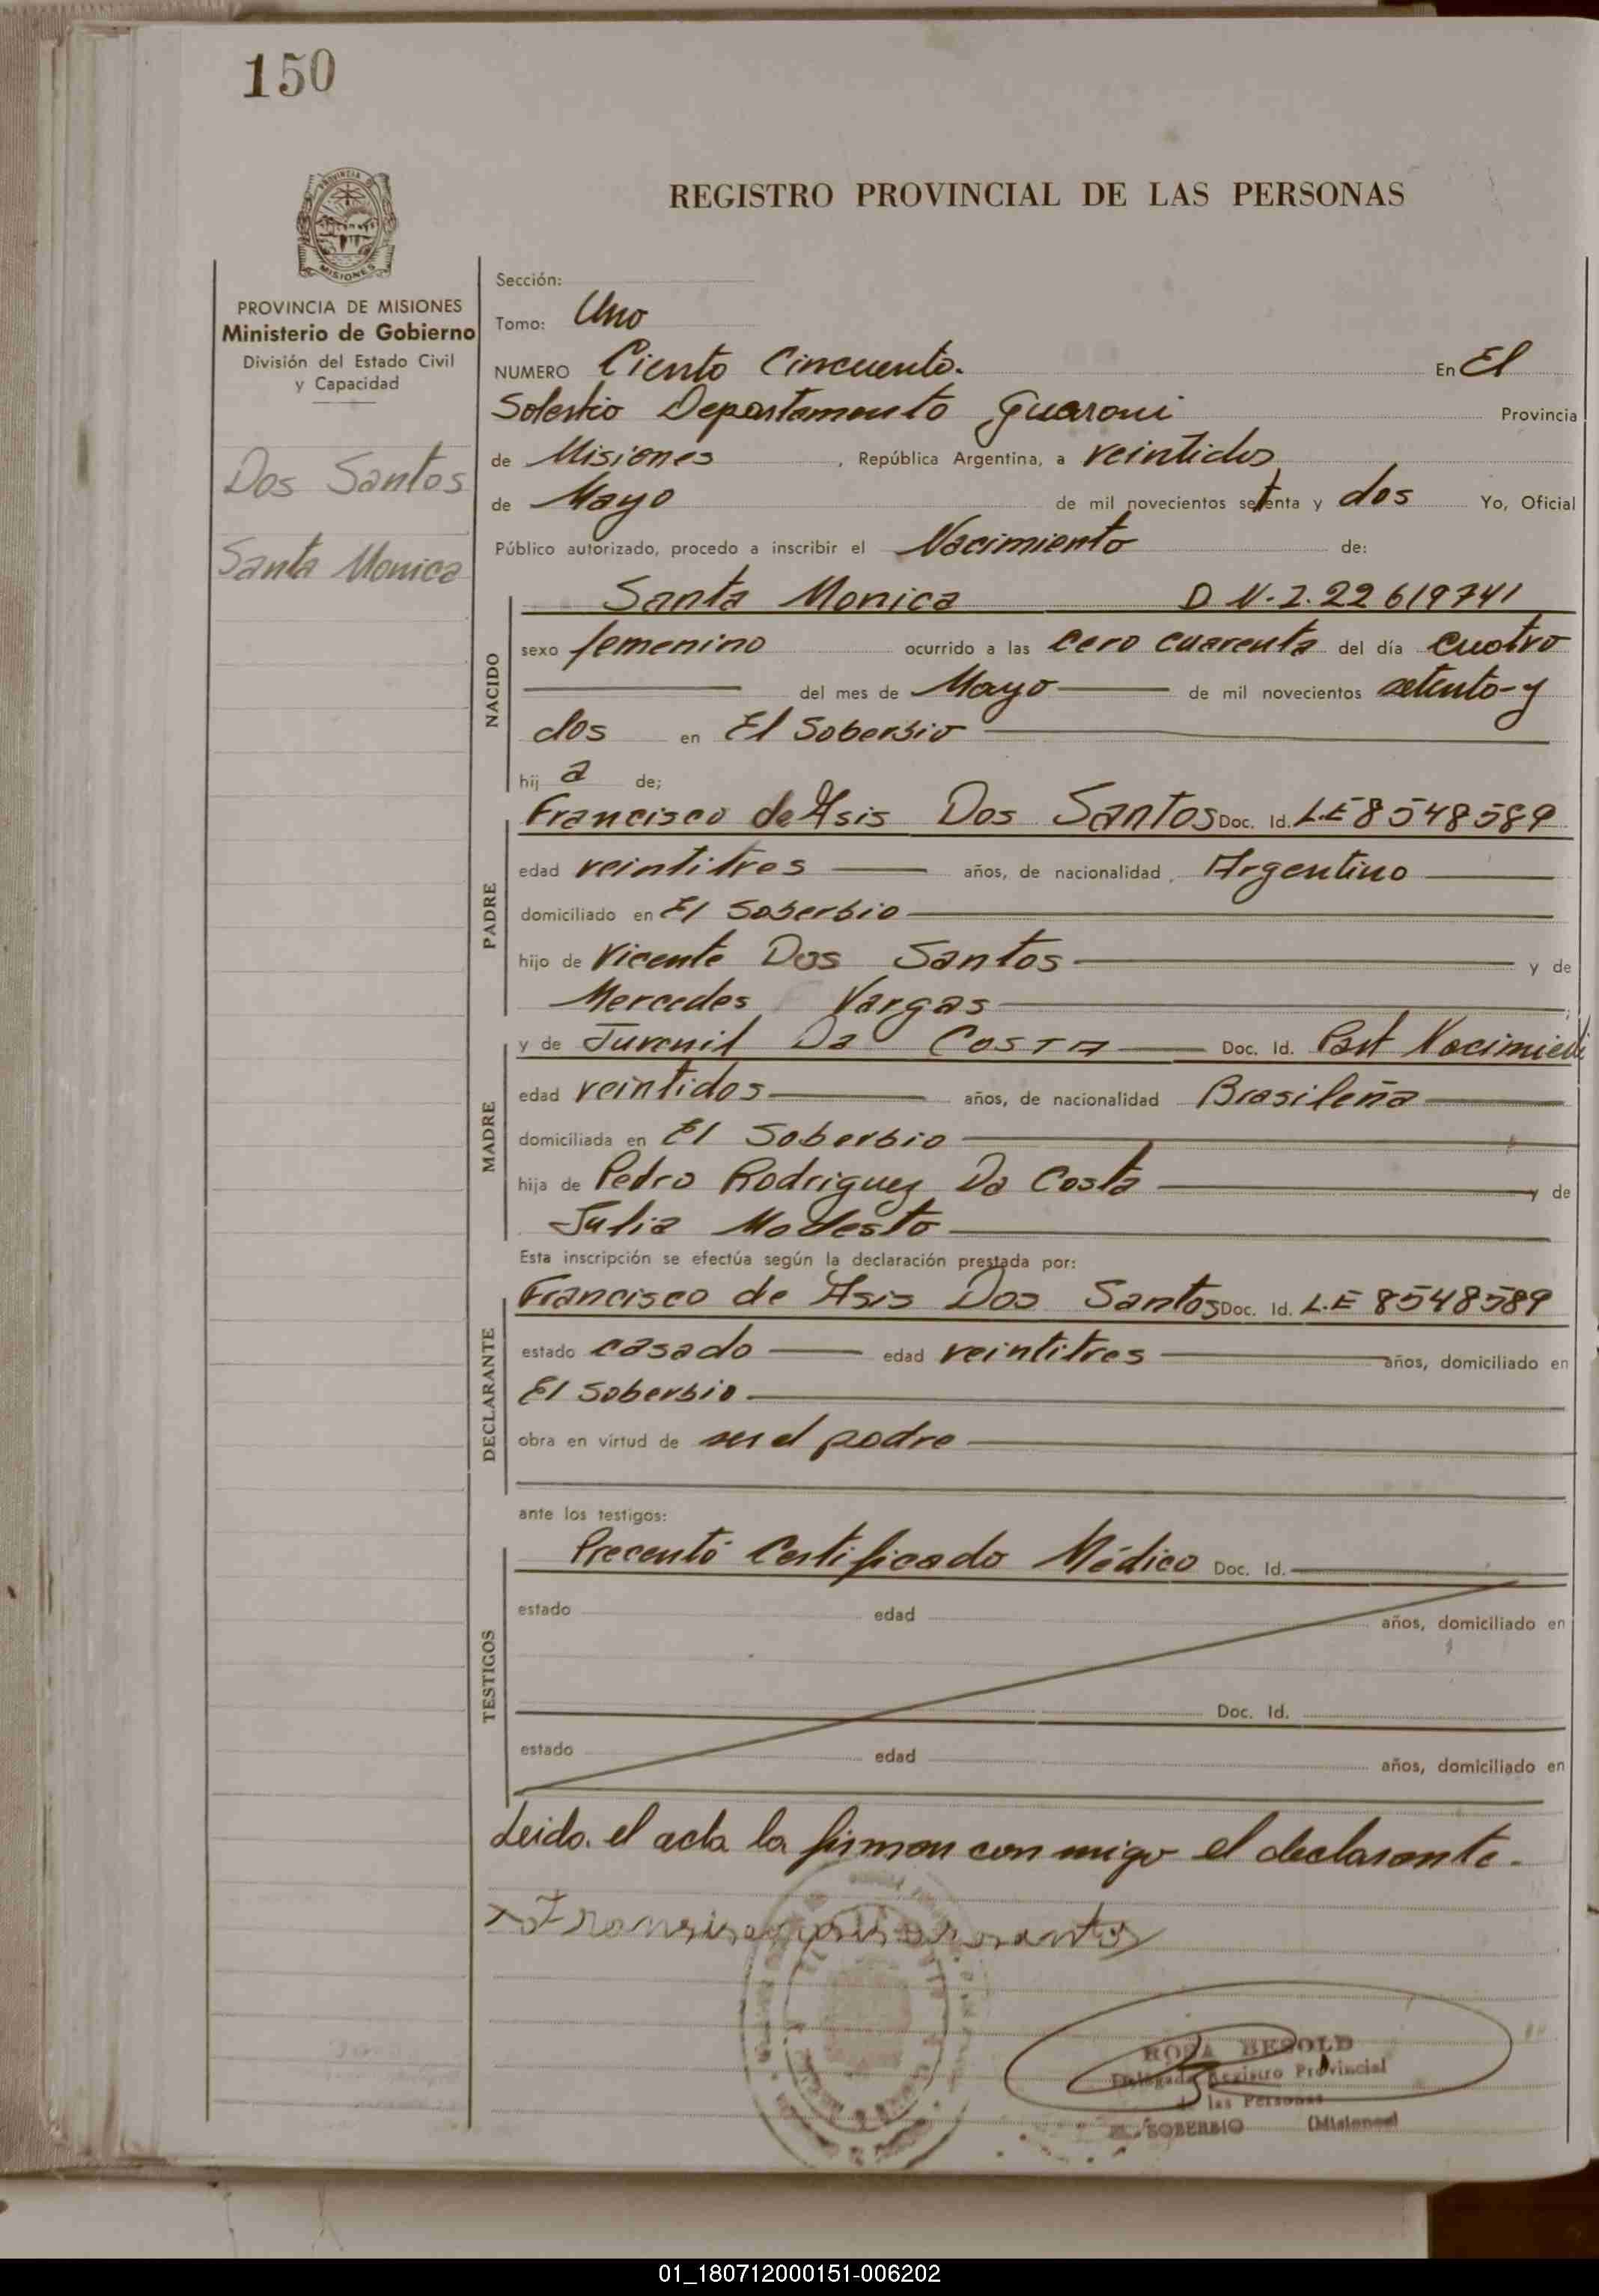 150
REGISTRO PROVINCIAL DE LAS PERSONAS
PROVINCIA DE MISIONES
Ministerio de Gobierno
División del Estado Civil
y Capacidad
Dos Santos
Santa Monica
Sección:
Tomo: Uno
NUMERO Ciento Cincuenta. En El
Departamento Guarani Provincia
de Misiones, República Argentina, a veintidos
de Mayo de mil novecientos setenta y dos Yo, Oficial
Público autorizado, procedo a inscribir el Nacimiento de:
NACIDO
Santa Monica D N.I. 22619741
sexo femenino ocurrido a las cero cuarenta del día cuatro
del mes de Mayo de mil novecientos setenta y
dos en El Soberbio
hij a de;
PADRE
Francisco de Asis Dos Santos Doc. Id. L.E 8548589
edad veintitres años, de nacionalidad Argentino
domiciliado en El Soberbio
hijo de Vicente Dos Santos y de
Mercedes Vargas
MADRE
y de Juvenil Da Costa Doc. Id.
edad veintidos años, de nacionalidad Brasileña
domiciliada en El Soberbio
hija de Pedro Rodriguez Da Costa y de
Julia Modesto
Esta inscripción se efectúa según la declaración prestada por:
DECLARANTE
Francisco de Asis Dos Santos Doc. Id. L.E 8548589
estado casado edad veintitres años, domiciliado en
El Soberbio
obra en virtud de ser el padre
ante los testigos:
TESTIGOS
Precentó Certificado Médico Doc. Id.
estado edad años, domiciliado en
Doc. Id.
estado edad años, domiciliado en
Leido el acta la firman con migo el declarante.
ROSA BESOLD
Delegada Registro Provincial
de las Personas
EL SOBERBIO (Misiones)
01_180712000151-006202